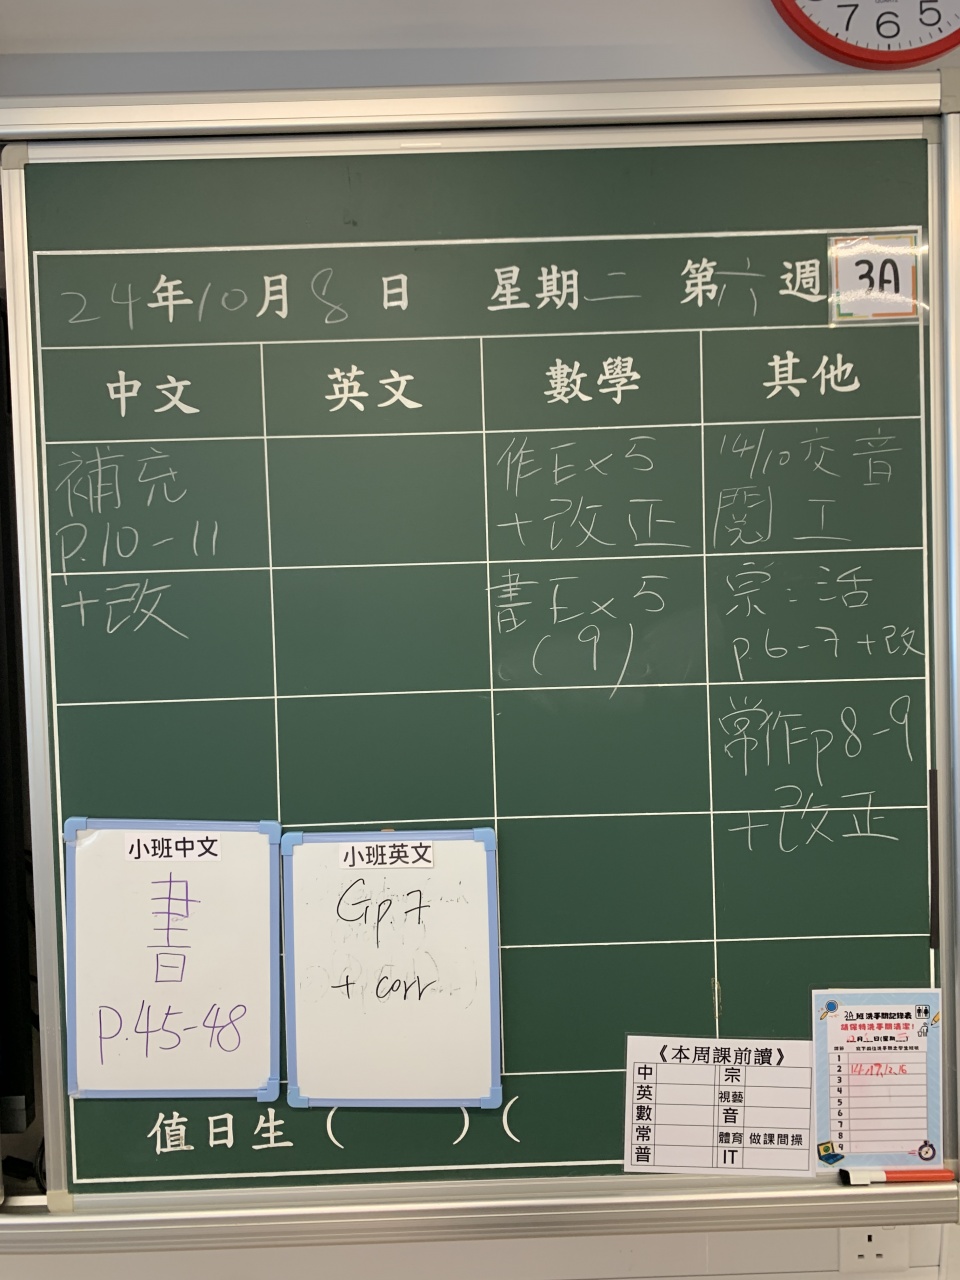 7 6 5
24年10月8日 星期二 第六週 3A
中文 英文 數學 其他
補充
P.10-11
+改
作Ex5
+改正
書Ex5
(9)
14/10交音
閱工
宗:活
p.6-7+改
常作p8-9
+改正
小班中文
書
P.45-48
小班英文
Gp.7
+ corr
值日生( )(
《本周課前讀》
中 宗
英 視藝
數 音
常 體育 做課間操
普 IT
3A班洗手間記錄表
請保持洗手間清潔!
1
2
3
4
5
6
7
8
9